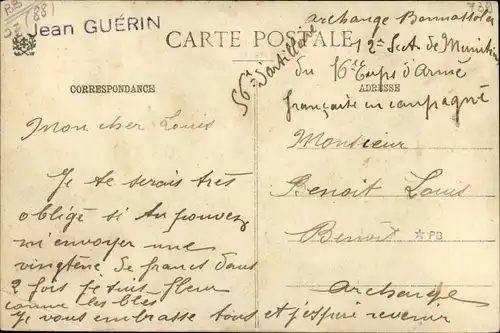 (88)
Jean GUÉRIN
CARTE POSTALE
archange Bonnassola
12e Sect de Munition
56e d'artillerie
du 16e Corps d'Armé
française en campagne
CORRESPONDANCE
ADRESSE
Mon cher Louis
Je te serais très
obligé si tu pouvez
m'envoyer une
vingtène de francs dans
2 fois je suis fleur
comme les blés
Je vous embrasse tous et j'espoir revenir
Monsieur
Benoit Louis
Benoit
PB
Archange